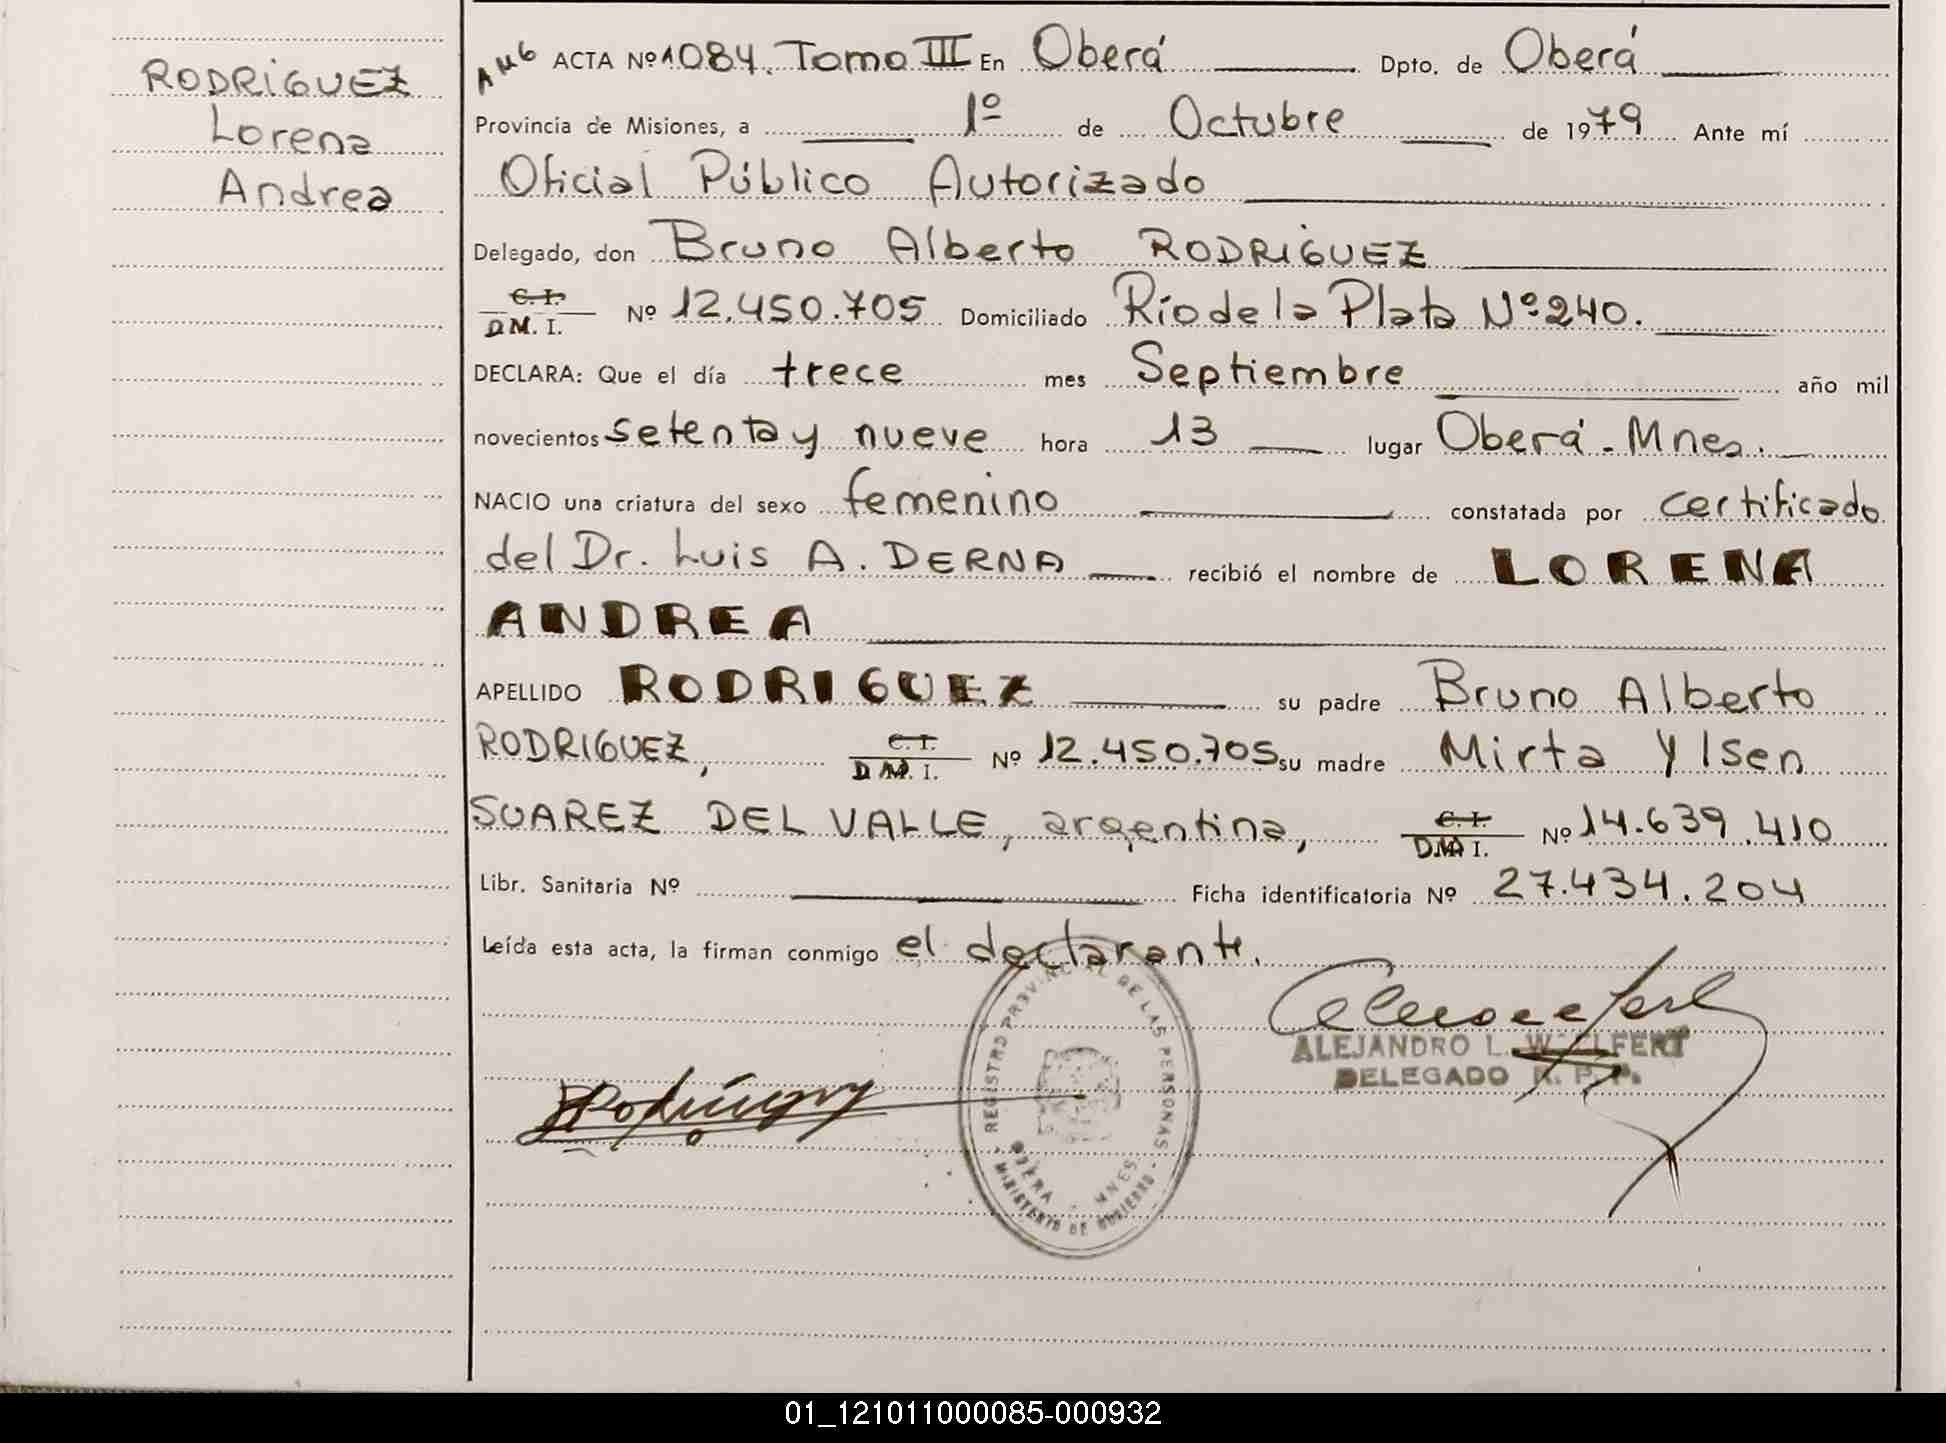 RODRÍGUEZ
Lorena
Andrea
AMG ACTA Nº 1084. Tomo III En Oberá Dpto. de Oberá
Provincia de Misiones, a 1º de Octubre de 1979 Ante mí
Oficial Público Autorizado
Delegado, don Bruno Alberto RODRÍGUEZ
C.I.
D M. I. Nº 12.450.705 Domiciliado Río de la Plata Nº 240.
DECLARA: Que el día trece mes Septiembre año mil
novecientos setenta y nueve hora 13 lugar Oberá - Mnes.
NACIO una criatura del sexo femenino constatada por certificado
del Dr. Luis A. DERNA recibió el nombre de LORENA
ANDREA
APELLIDO RODRIGUEZ su padre Bruno Alberto
RODRIGUEZ, C.I.
D M. I. Nº 12.450.705 su madre Mirta Ylsen
SUAREZ DEL VALLE, argentina, C.I.
D.M. I. Nº 14.639.410
Libr. Sanitaria Nº Ficha identificatoria Nº 27.434.204
Leída esta acta, la firman conmigo el declarante.
REGISTRO PROVINCIAL DE LAS PERSONAS
OBERA - MNES
MINISTERIO DE GOBIERNO
ALEJANDRO L. WELFERT
DELEGADO R. P. P.
BRodríguez
01_121011000085-000932